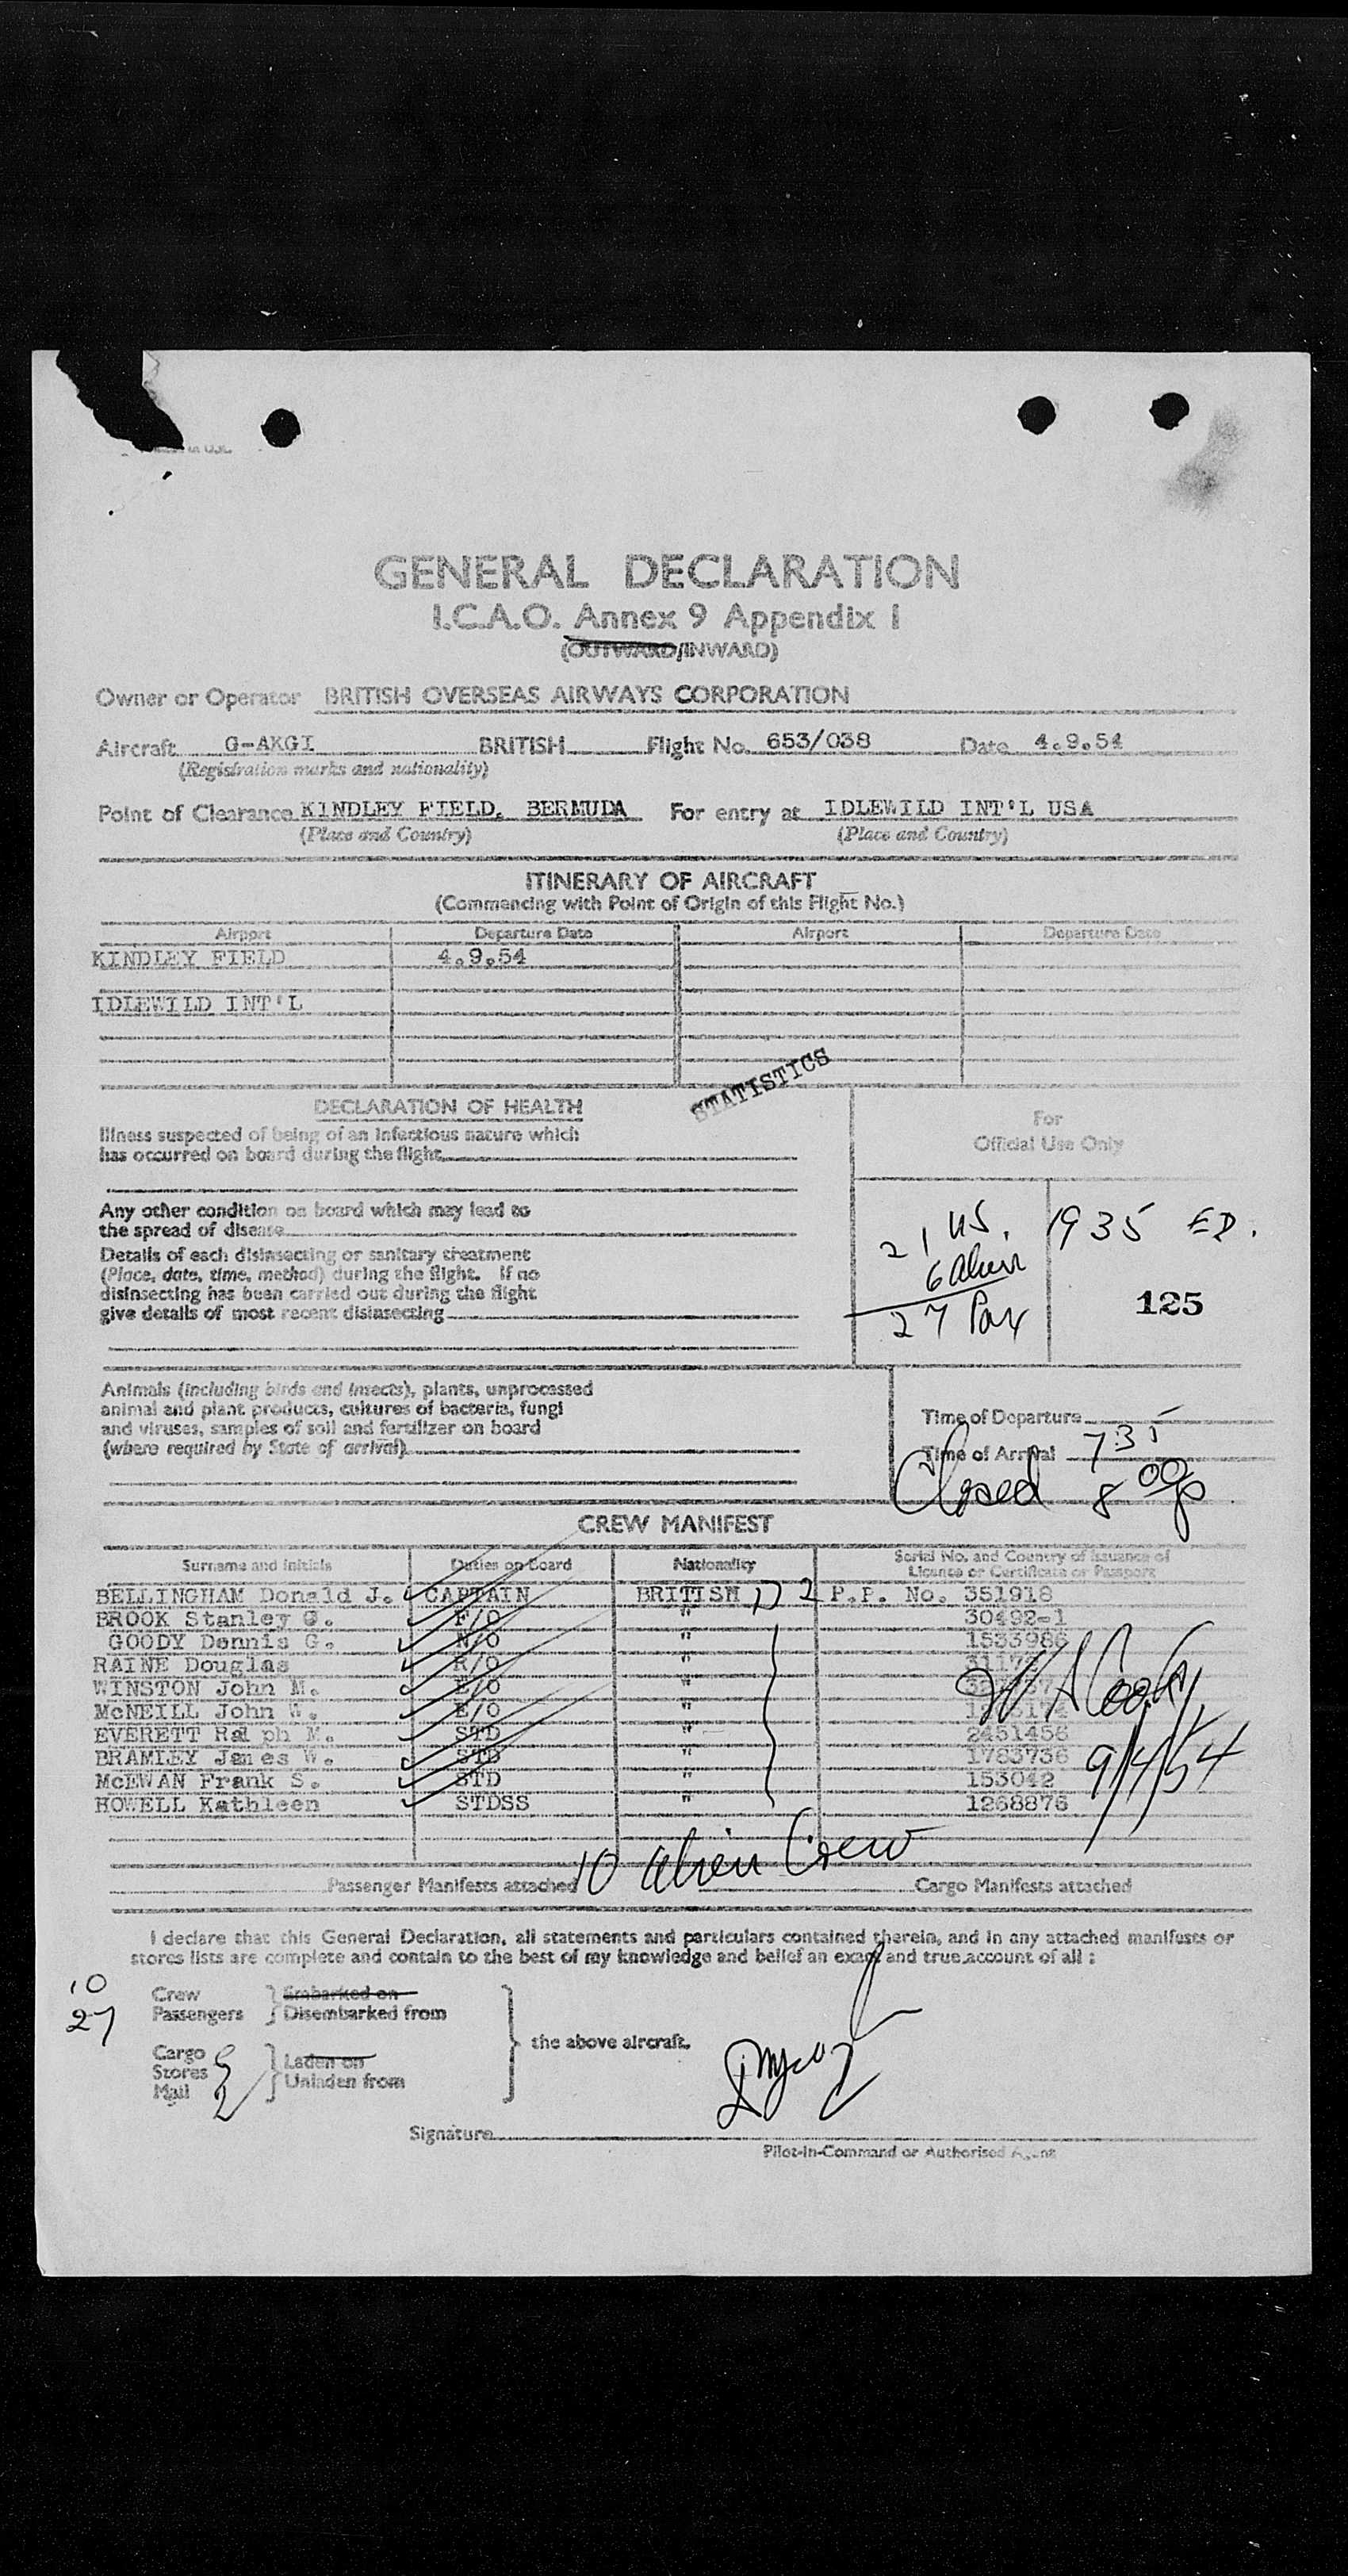 in U.K.
GENERAL DECLARATION
I.C.A.O. Annex 9 Appendix 1
(OUTWARD/INWARD)
Owner or Operator BRITISH OVERSEAS AIRWAYS CORPORATION
Aircraft G-AKGI BRITISH Flight No. 653/038 Date 4.9.54
(Registration marks and nationality)
Point of Clearance KINDLEY FIELD. BERMUDA For entry at IDLEWILD INT'L USA
(Place and Country) (Place and Country)
ITINERARY OF AIRCRAFT
(Commencing with Point of Origin of this Flight No.)
Airport Departure Date Airport Departure Date
KINDLEY FIELD 4.9.54
IDLEWILD INT'L
STATISTICS
DECLARATION OF HEALTH
Illness suspected of being of an infectious nature which
has occurred on board during the flight
Any other condition on board which may lead to
the spread of disease
Details of each disinsecting or sanitary treatment
(Place, date, time, method) during the flight. If no
disinsecting has been carried out during the flight
give details of most recent disinsecting
For
Official Use Only
21 US. 1935 ED.
6 Alien
27 Pax 125
Animals (including birds and insects), plants, unprocessed
animal and plant products, cultures of bacteria, fungi
and viruses, samples of soil and fertilizer on board
(where required by State of arrival)
Time of Departure
Time of Arrival 735
Closed 8 00
CREW MANIFEST
Surname and initials Duties on board Nationality Serial No. and Country of issuance of
Licence or Certificate or Passport
BELLINGHAM Donald J. CAPTAIN BRITISH D 2 P.P. No. 351918
BROOK Stanley G. F/O " 30492-1
GOODY Dennis G. N/O " 1533986
RAINE Douglas R/O "
WINSTON John M. E/O "
McNEILL John W. E/O "
EVERETT Ralph M. STD " 2451456
BRAMLEY James W. STD " 1783736
McEWAN Frank S. STD " 153042
HOWELL Kathleen STDSS " 1268876
9/4/54
10 Alien Crew
Passenger Manifests attached Cargo Manifests attached
I declare that this General Declaration, all statements and particulars contained therein, and in any attached manifests or
stores lists are complete and contain to the best of my knowledge and belief an exact and true account of all :
10 Crew Embarked on
27 Passengers Disembarked from
the above aircraft.
Cargo Laden on
Stores Unladen from
Mail
Signature
Pilot-in-Command or Authorised Agent